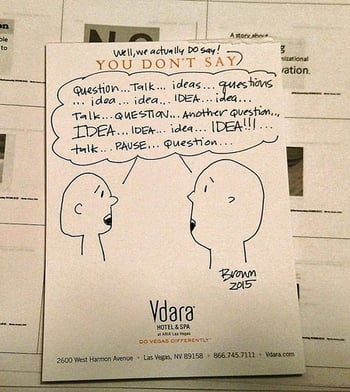 A story about
Well, we actually DO say!
YOU DON'T SAY
Question... Talk... ideas... questions
... idea... idea... IDEA... idea...
Talk... QUESTION... Another Question...
IDEA... IDEA... idea... IDEA!!!...
talk... PAUSE... Question...
Brown
2015
Vdara
HOTEL & SPA
at ARIA Las Vegas
DO VEGAS DIFFERENTLY™
2600 West Harmon Avenue • Las Vegas, NV 89158 • 866.745.7111 • Vdara.com